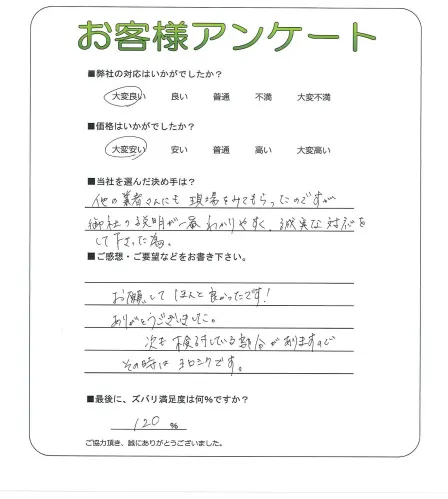 お客様アンケート
■弊社の対応はいかがでしたか？
大変良い 良い 普通 不満 大変不満
■価格はいかがでしたか？
大変安い 安い 普通 高い 大変高い
■当社を選んだ決め手は？
他の業者さんにも現場をみてもらったのですが
御社の説明が一番わかりやすく、誠実な対応を
して下さった為。
■ご感想・ご要望などをお書き下さい。
お願いして ほんと良かったです！
ありがとうございました。
次も検討している部分がありますので
その時はヨロシクです。
■最後に、ズバリ満足度は何%ですか？
120 %
ご協力頂き、誠にありがとうございました。